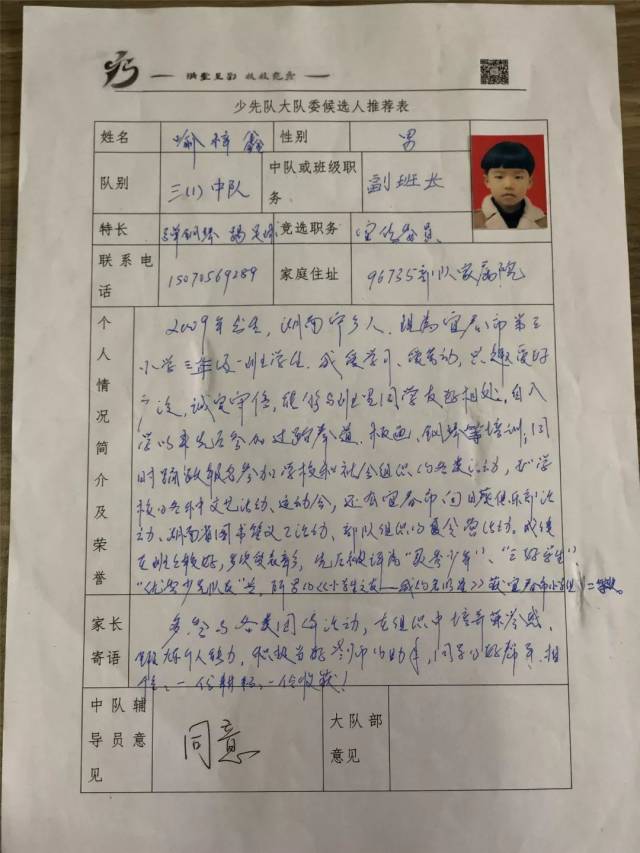 少先队大队委候选人推荐表
姓名 性别 男
队别 三(1)中队 中队或班级职务 副班长
特长 弹钢琴 竞选职务 宣传委员
联系电话 15070569289 家庭住址 96735部队家属院
个人情况简介及荣誉
2009年出生,湖南宁乡人,现为宜春市第三
小学三年级一班学生。我爱学习、爱劳动,兴趣爱好
广泛,诚实守信,能够与班里同学友好相处。自入
学以来先后参加过跆拳道、板画、钢琴等培训;同
时踊跃报名参加学校和社会组织的各类活动,如学
校的各种文艺活动、运动会,还有宜春市
动、湖南省图书馆义工活动、部队组织的夏令营活动。成绩
在班上较好,多次受表彰,先后被评为
"三好学生"
"优秀少先队员"
家长寄语
多参与各类团体活动,在组织中培养
锻炼个人能力,积极当好老师的助手,同学的好
一份耕耘,一份收获!
中队辅导员意见 同意 大队部意见